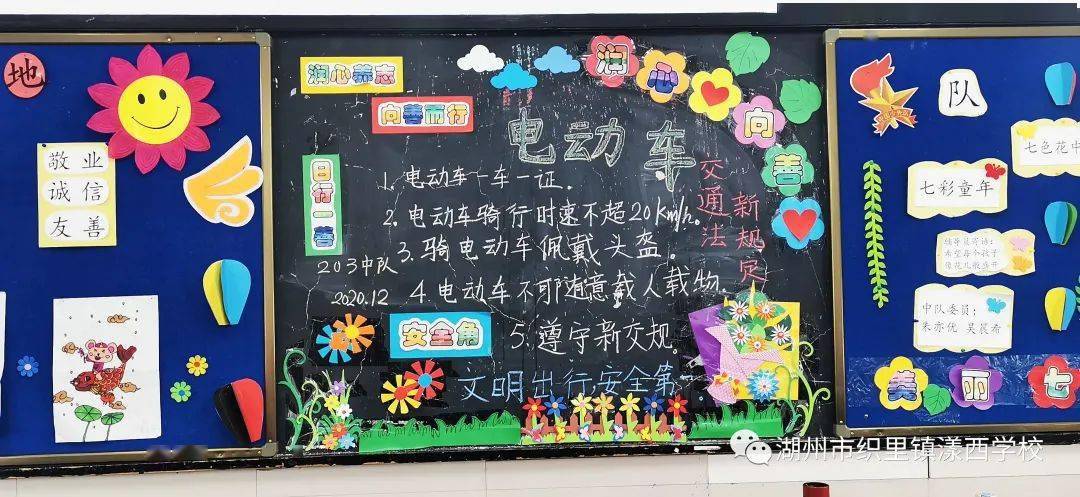 地
敬业
诚信
友善
润心养志
向善而行
日行一善
润心向善
电动车
1. 电动车一车一证.
2. 电动车骑行时速不超20km/h。
3. 骑电动车佩戴头盔。
4. 电动车不能随意载人载物.
5. 遵守新交规。
文明出行,安全第一.
交通法
新规定
203中队
2020.12
安全角
队
七色花中
七彩童年
辅导员寄语:
希望每个孩子
像花儿般盛开
中队委员:
朱亦优 吴晨希
美丽七
湖州市织里镇漾西学校